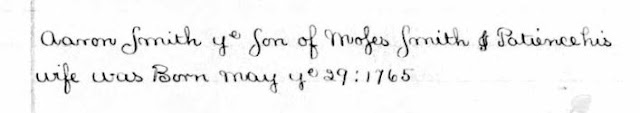 Aaron Smith yᵉ Son of Moses Smith & Patience his
wife was Born may yᵉ 29:1765